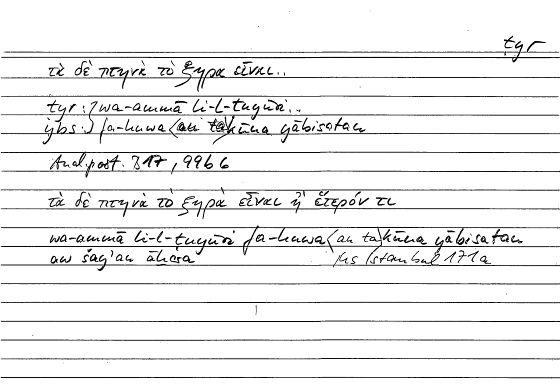 tyr
τὰ δὲ πτηνὰ τὸ ξηρα εἶναι..
tyr :} wa-ammā li-l-ṭuyūri..
ybs :} fa-huwa <an ta>kūna yābisatan
Anal. post. B 17, 99b 6
τὰ δὲ πτηνὰ τὸ ξηρὰ εἶναι ἢ ἕτερόν τι
wa-ammā li-l-ṭuyūri fa-huwa <an ta>kūna yābisatan
aw šayʾan āḫara Ms Istanbul 171a